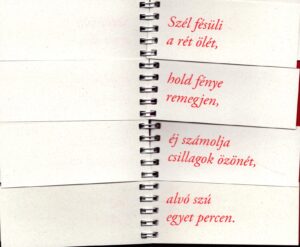 Szél fésüli
a rét ölét,
hold fénye
remegjen,
éj számolja
csillagok özönét,
alvó szú
egyet percen.